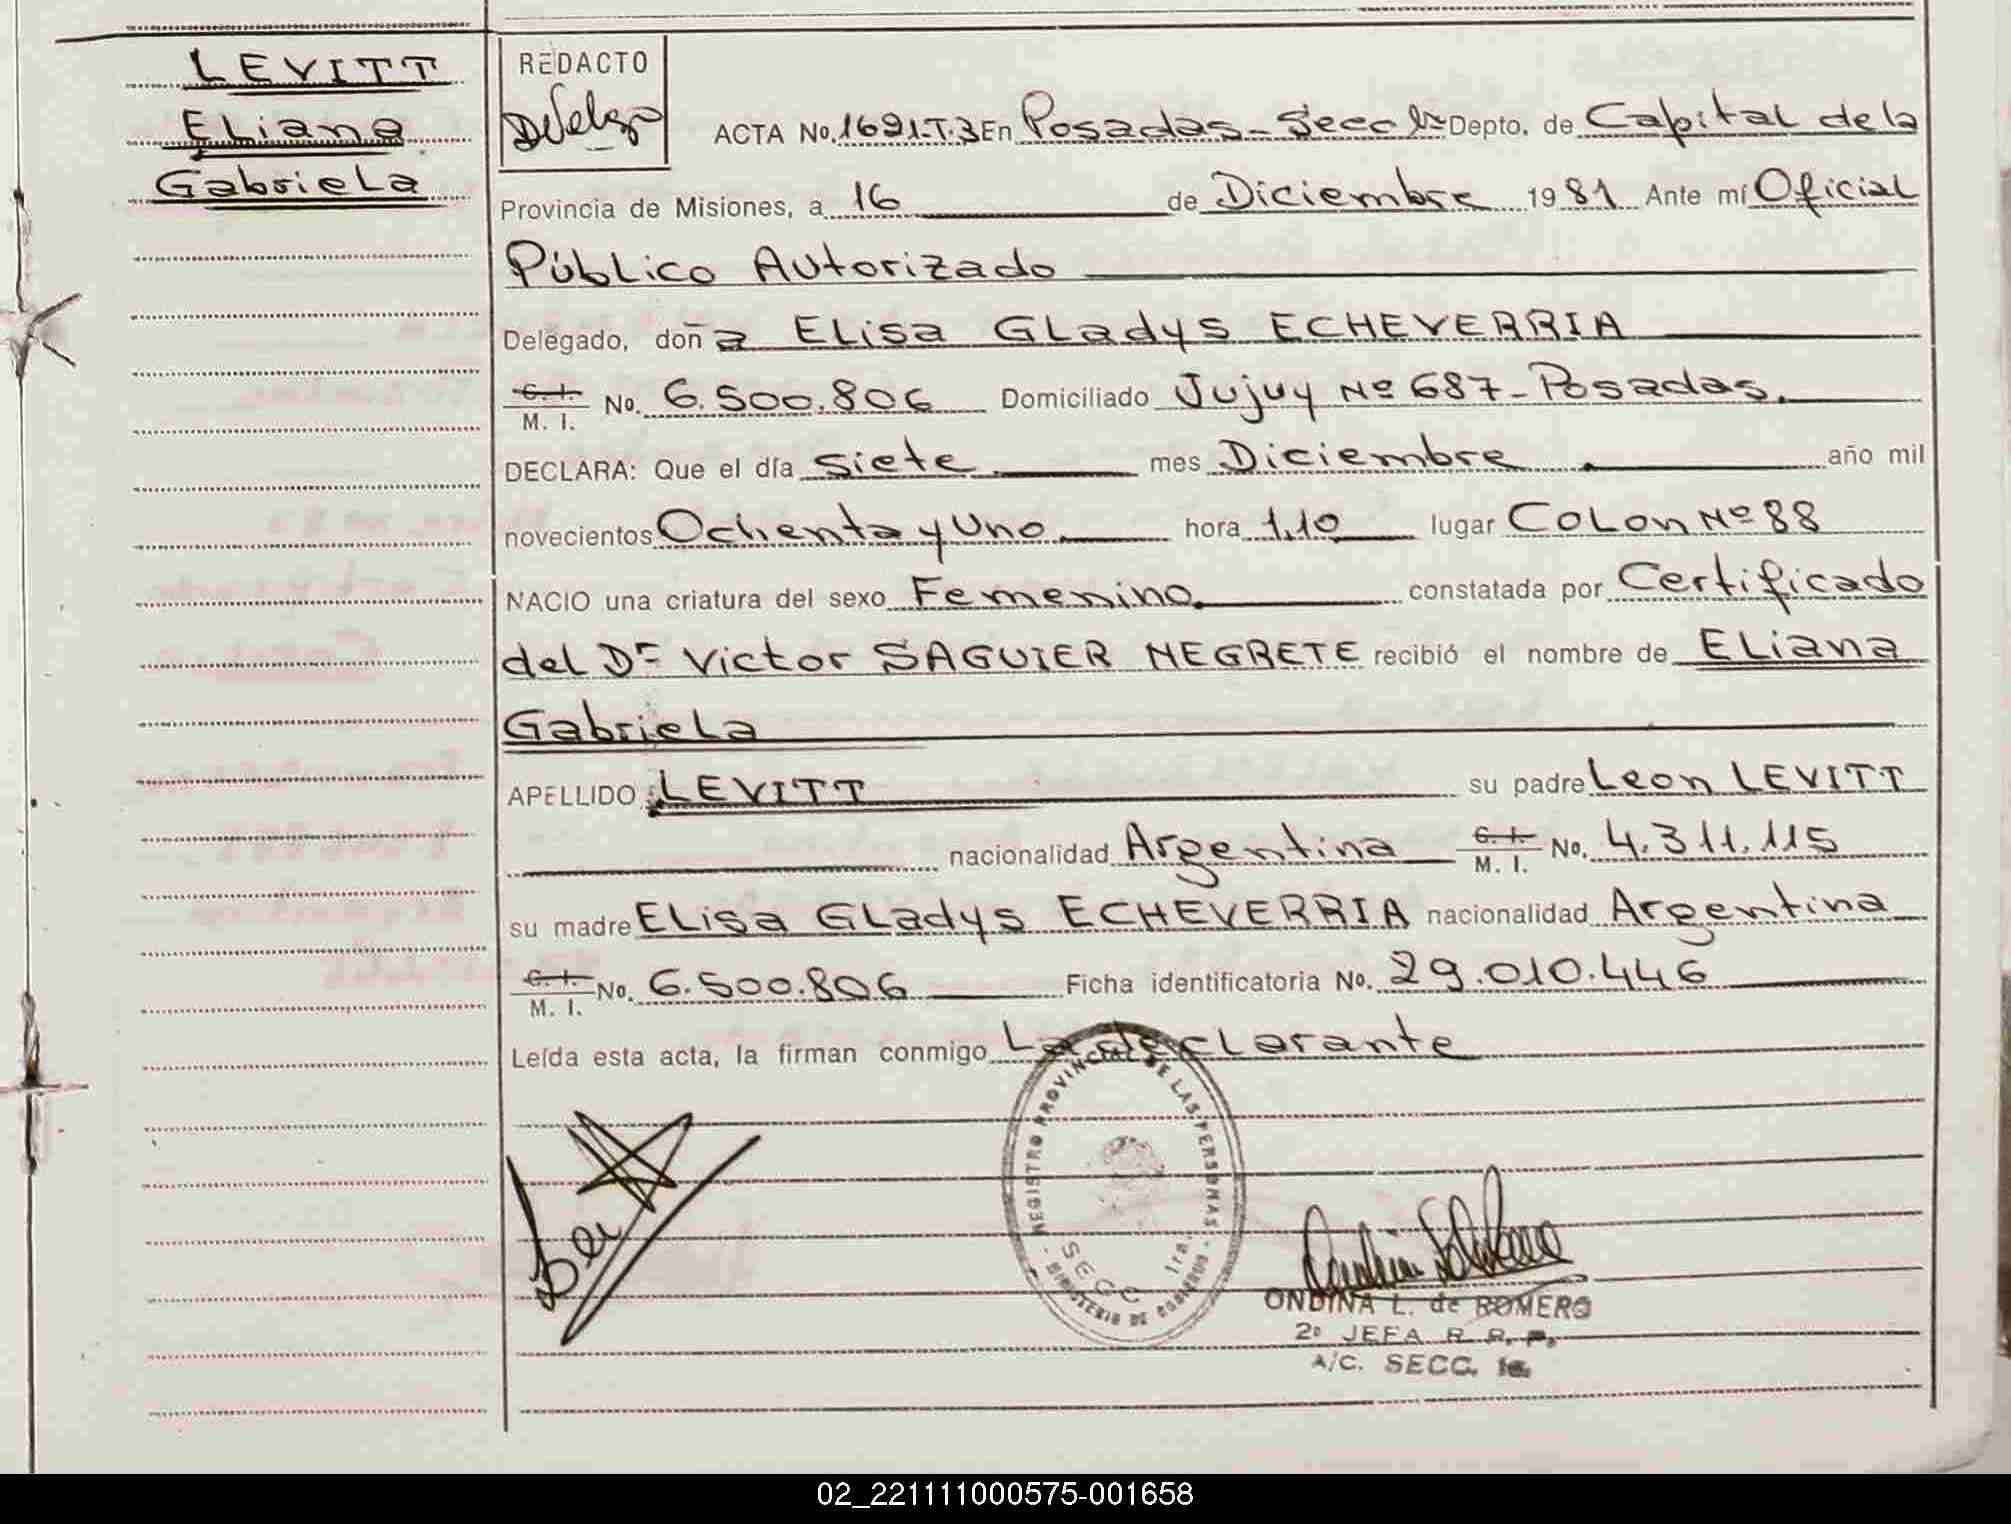 LEVITT
Eliana
Gabriela
REDACTO
ACTA No. 1691-T.3 En Posadas - Secc 1ra Depto. de Capital de la
Provincia de Misiones, a 16 de Diciembre 1981 Ante mí Oficial
Público Autorizado
Delegado, doña Elisa Gladys ECHEVERRIA
C. I.
M. I. No. 6.500.806 Domiciliado Jujuy Nº 687 - Posadas.
DECLARA: Que el día siete mes Diciembre año mil
novecientos Ochenta y Uno hora 1,10 lugar Colon Nº 88
NACIO una criatura del sexo Femenino constatada por Certificado
del Dr Victor SAGUIER NEGRETE recibió el nombre de Eliana
Gabriela
APELLIDO LEVITT su padre Leon LEVITT
nacionalidad Argentina C. I.
M. I. No. 4.311.115
su madre Elisa Gladys ECHEVERRIA nacionalidad Argentina
C. I.
M. I. No. 6.500.806 Ficha identificatoria No. 29.010.446
Leída esta acta, la firman conmigo La declarante
REGISTRO PROVINCIAL DE LAS PERSONAS
- MINISTERIO DE GOBIERNO -
SECC 1ra.
ONDINA L. de ROMERO
2º JEFA R. R. P.
A/C. SECC. 1a.
02_221111000575-001658